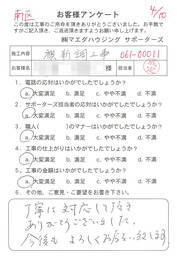 南区
4/10
お客様アンケート
この度は工事のご用命を頂きありがとうございました。お手数で
すがご記入頂き、ご返送頂きますようお願い申し上げます。
㈱マエダハウジング サポーターズ
施工内容 襖新調工事 061-00011
お客様名 様 担当者
1、電話の応対はいかがでしたでしょうか?
a、大変満足 b、満足 c、やや不満 d、不満
2、サポーターズ担当者の応対はいかがでしたでしょうか?
a、大変満足 b、満足 c、やや不満 d、不満
3、職人( )のマナーはいかがでしたでしょうか?
a、大変満足 b、満足 c、やや不満 d、不満
4、工事の仕上がりはいかがでしたでしょうか?
a、大変満足 b、満足 c、やや不満 d、不満
5、工事の金額はいかがでしたでしょうか?
a、大変満足 b、満足 c、やや不満 d、不満
6、その他、ご意見・ご要望をお書き下さい。
丁寧に対応して頂き
ありがとうございました。
今後も よろしくお願い致します